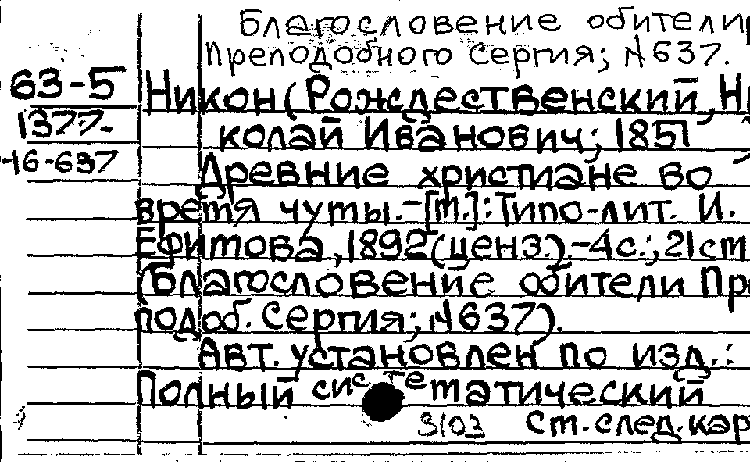 Благословение обители
Преподобного Сергия; №637.
63-5
1377-
46-637
Никон (Рождественский, Ни
колай Иванович; 1851
Древние христиане во
время чуты.-[М.]: Типо-лит. И.
Ефимова, 1892 (ценз.).-4с.; 21см
(Благословение обители Пре
подоб. Сергия; №637).
Авт. установлен по изд.:
Полный систематический
3102 См. след. кар